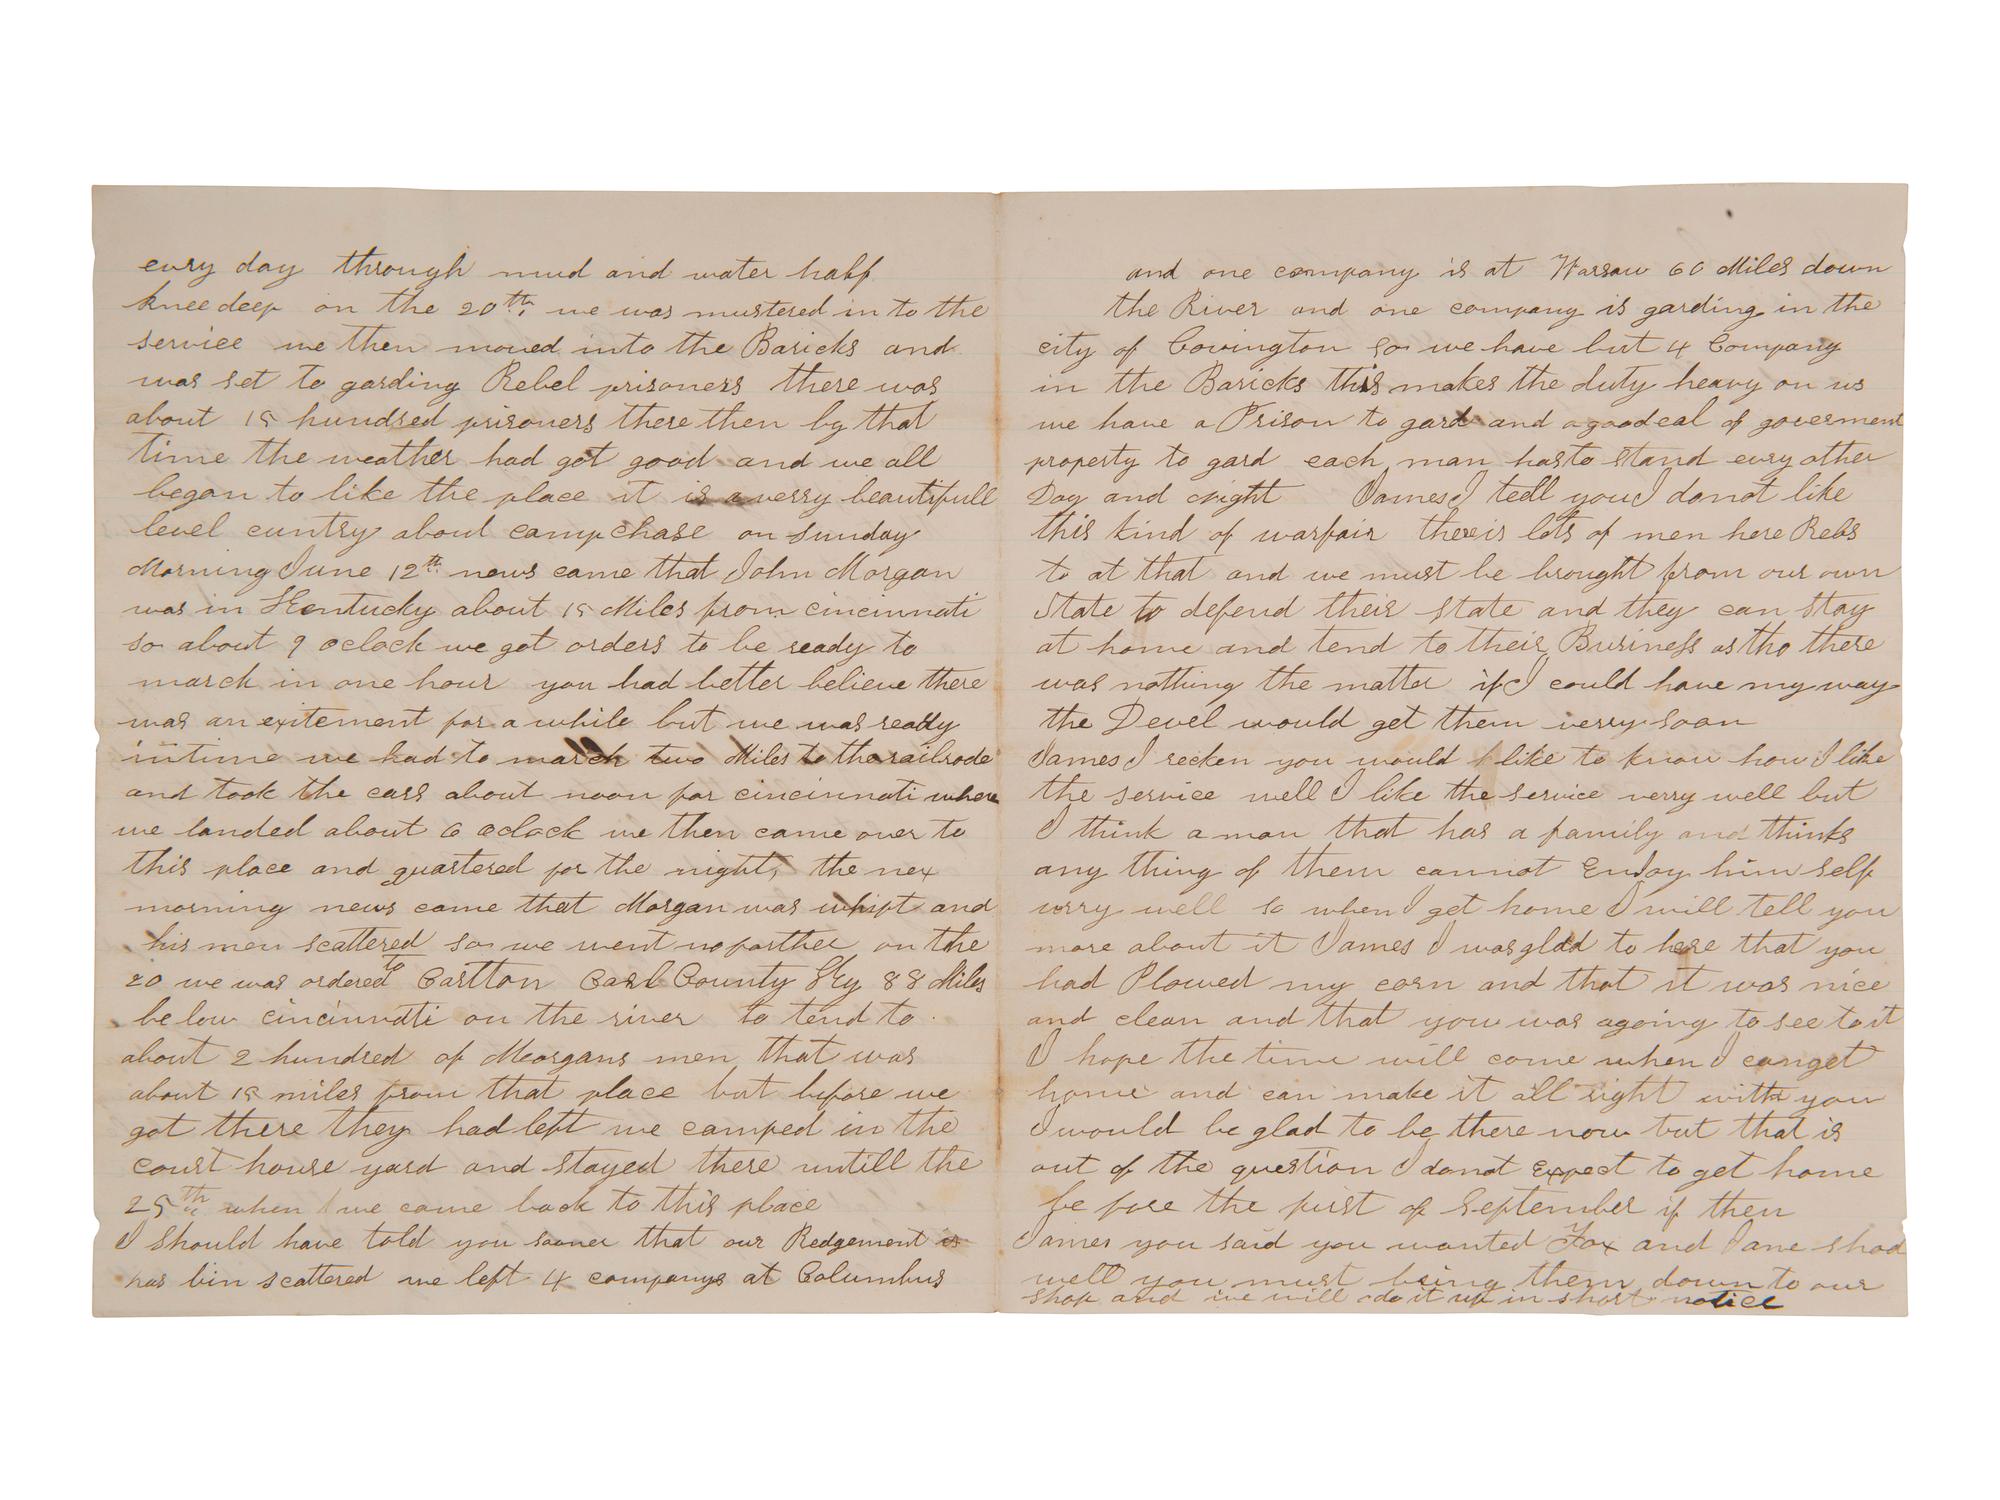 every day through mud and water half
knee deep on the 20th we was mustered in to the
service we then moved into the Baricks and
was set to garding Rebel prisoners there was
about 15 hundred prisoners there then by that
time the weather had got good and we all
began to like the place it is a verry beautifull
level cuntry about camp chase on sunday
Morning June 12th news came that John Morgan
was in Kentucky about 15 Miles from cincinnati
so about 9 oclock we got orders to be ready to
march in one hour you had better believe there
was an exitement for a while but we was ready
in time we had to march two Miles to the railrode
and took the cars about noon for cincinnati where
we landed about 6 oclock we then came over to
this place and quartered for the night, the nex
morning news came that Morgan was whipt and
his men scattered so we went no farther on the
20 we was ordered to Carlton Carl County Ky 88 Miles
below cincinnati on the river to tend to
about 2 hundred of Morgans men that was
about 15 miles from that place but before we
got there they had left we camped in the
court house yard and stayed there untill the
25th when we came back to this place
I should have told you sooner that our Redgement is
has bin scattered we left 4 companys at Columbus
and one company is at Warsaw 60 Miles down
the River and one company is garding in the
city of Covington so we have but 4 Company
in the Baricks this makes the duty heavy on us
we have a Prison to gard and a goodeal of goverment
property to gard each man has to stand evry other
Day and night James I tell you I donot like
this kind of warfair there is lots of men here Rebs
to at that and we must be brought from our own
State to defend their state and they can stay
at home and tend to their Business as tho there
was nothing the matter if I could have my way
the Devel would get them verry soon
James I recken you would like to know how I like
the service well I like the service verry well but
I think a man that has a family and thinks
any thing of them cannot Enjoy him self
verry well so when I get home I will tell you
more about it James I was glad to here that you
had Plowed my corn and that it was nice
and clean and that you was agoing to see to it
I hope the time will come when I can get
home and can make it all right with you
I would be glad to be there now but that is
out of the question I donot Expect to get home
be fore the first of September if then
James you said you wanted Fox and Jane shod
well you must bring them down to our
shop and we will do it up in short notice